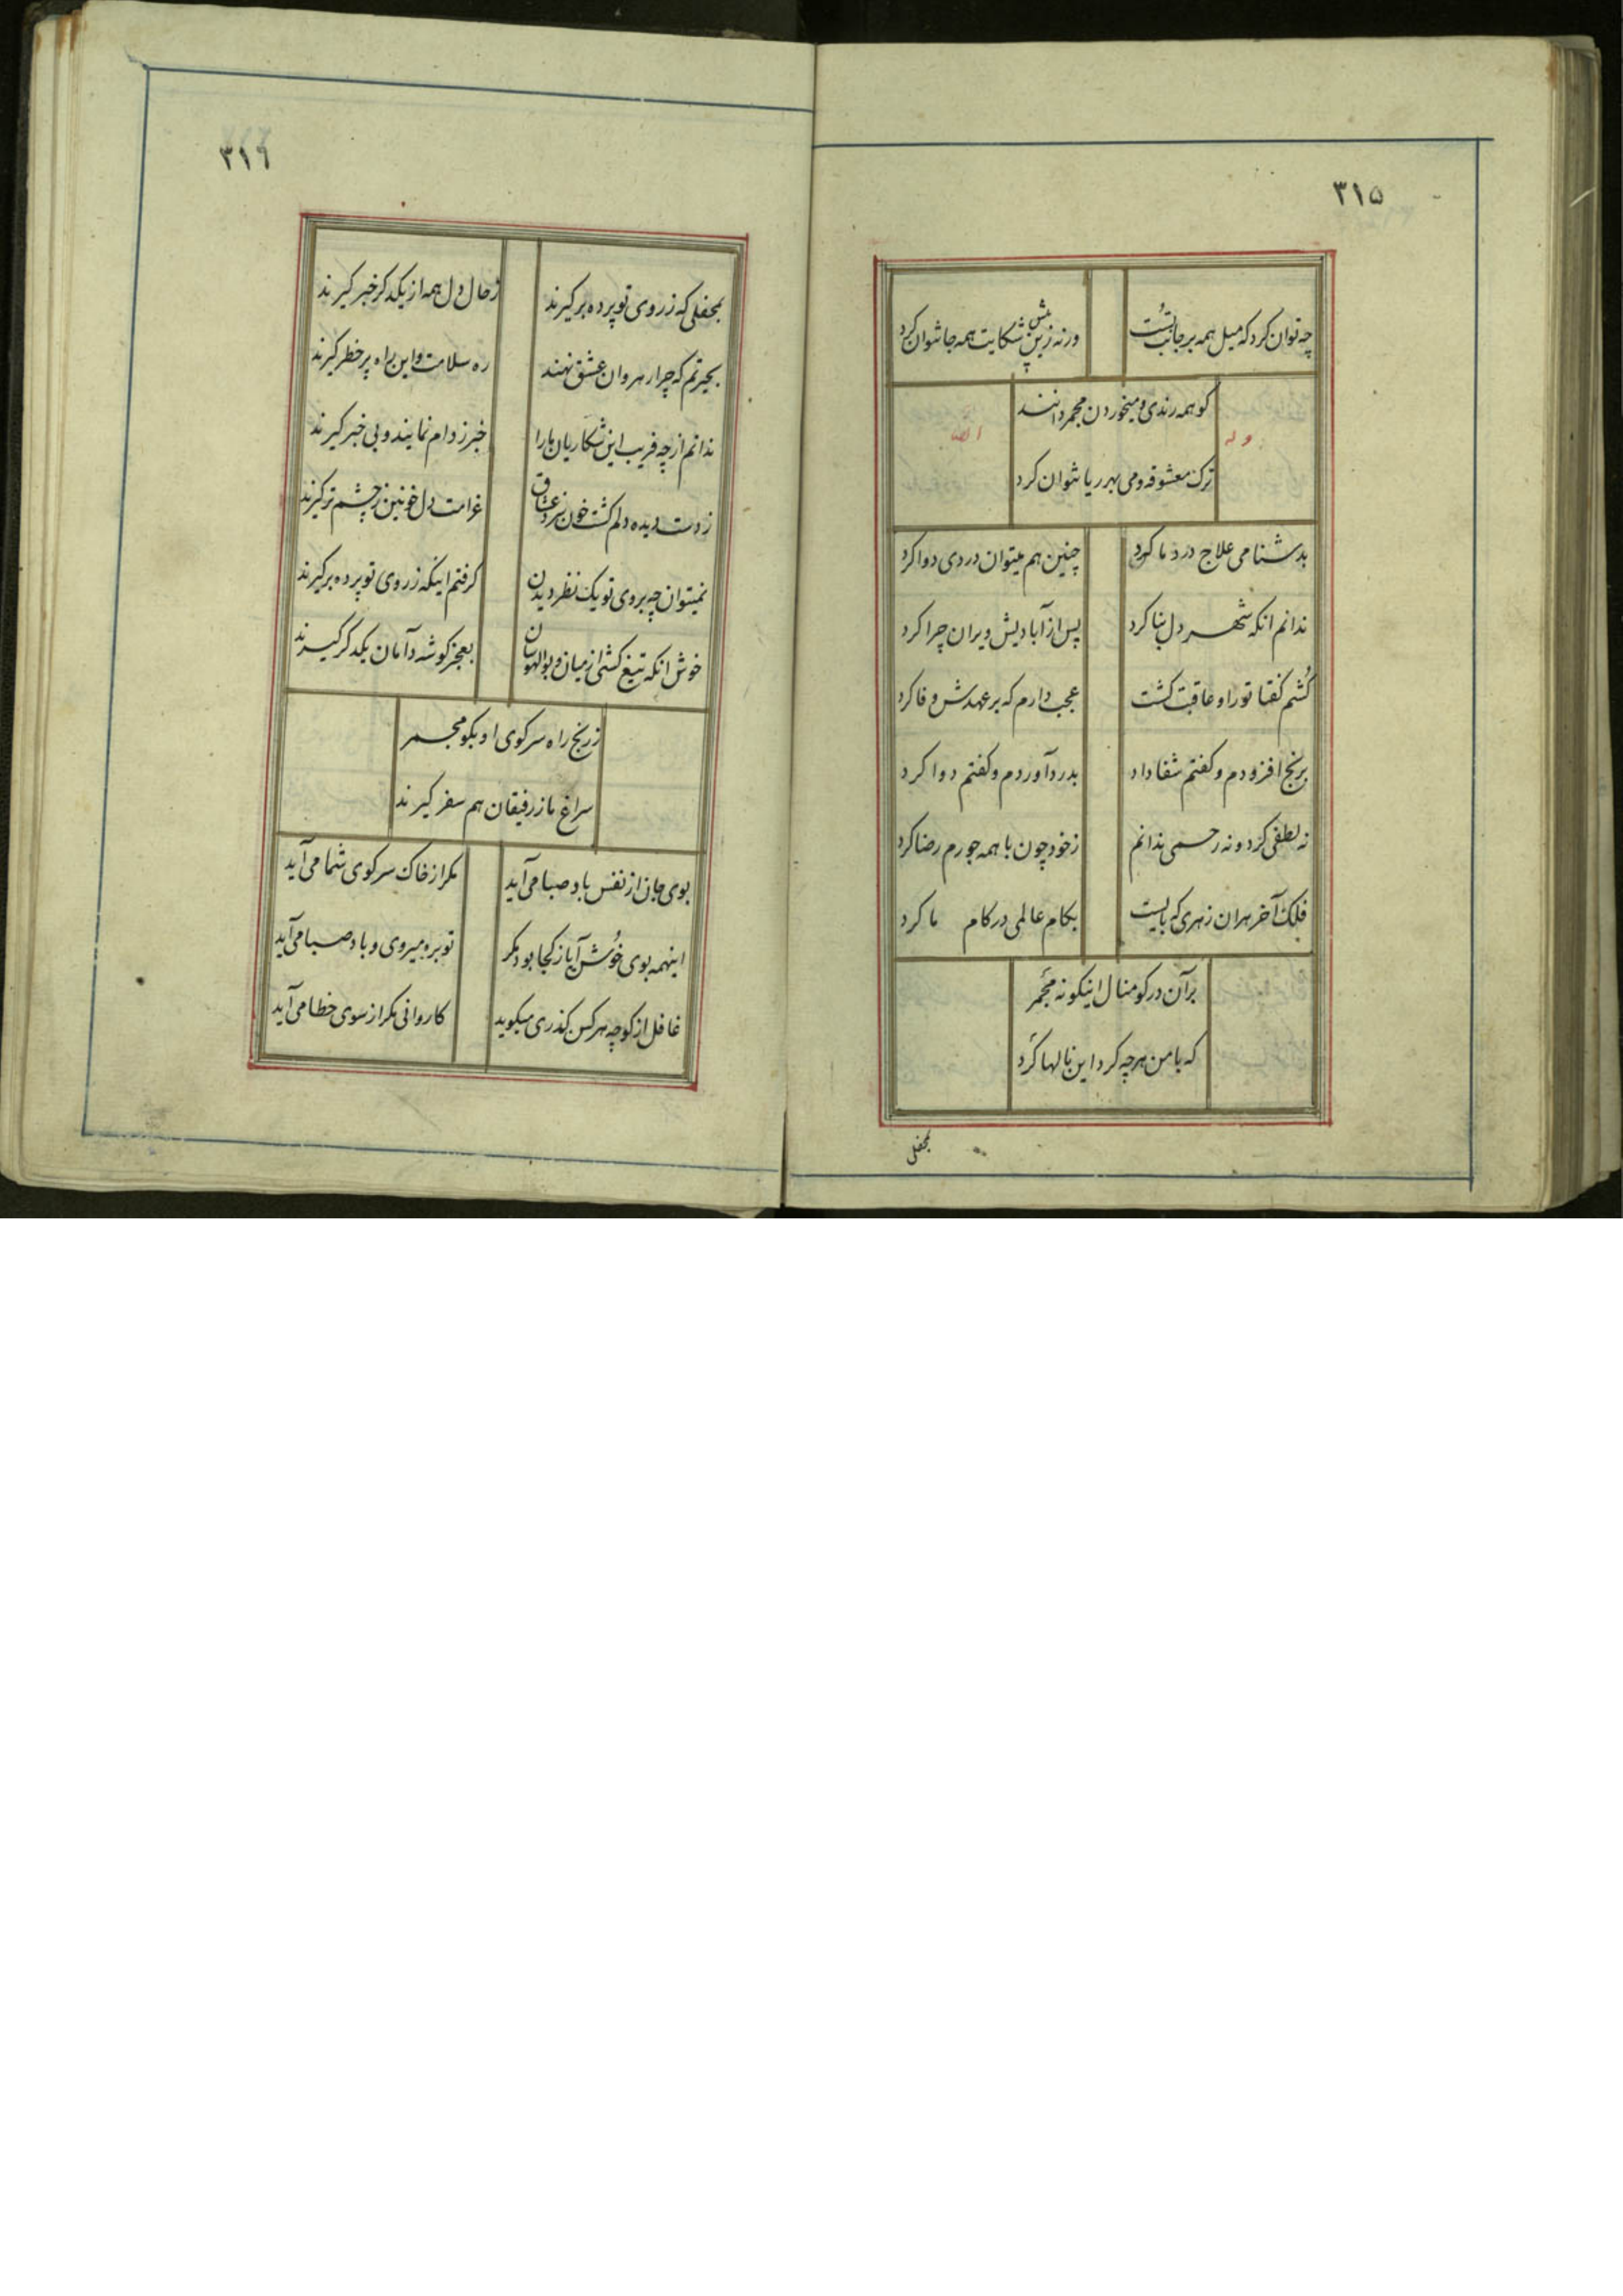 ۳۱۵
چه توان کرد که میل همه بر جانب تست
ورنه زین بیش شکایت همه جا نتوان کرد
کو همه رندی و میخوردن مجمر دانند
وله ایضا
ترک معشوقه و می بهر ریا نتوان کرد
بدشنامی علاج درد ما کرد
چنین هم میتوان دردی دوا کرد
ندانم انکه شهر دل بنا کرد
پس از آبادیش ویران چرا کرد
کُشم گفتا تو را و عاقبت کشت
عجب دارم که بر عهدش وفا کرد
برنج افزودم و گفتم شفا داد
بدرد آوردم و گفتم دوا کرد
نه لطفی کرد و نه رحمی ندانم
ز خود چون با همه جورم رضا کرد
فلک آخر هران زهری که بایست
بکام عالمی در کام ما کرد
بر آن در کو منال اینگونه مجمر
که با من هرچه کرد این نالها کرد
بمحفلی
۳۱۶
بمحفلی که ز روی تو پرده برگیرند
ز حال دل همه از یکدگر خبر گیرند
بحیرتم که چرا رهروان عشق نهند
ره سلامت و این راه پر خطر گیرند
ندانم از چه فریب این شکاریان ما را
خبر ز دام نمایند و بی خبر گیرند
ز دست دیده دلم گشت خون نزد عشاق
غرامت دل خونین ز چشم تر گیرند
نمیتوان چو بروی تو یک نظر دیدن
گرفتم اینکه ز روی تو پرده برگیرند
خوش انکه تیغ کشی از میان و بوالهوسان
بعجز گوشه دامان یکدگر گیرند
ز رنج راه سر کوی او بگو مجمر
سراغ ما ز رفیقان هم سفر گیرند
بوی جان از نفس باد صبا می آید
مگر از خاک سر کوی شما می آید
اینهمه بوی خُوش آیا ز کجا بود مگر
تو بره میروی و باد صبا می آید
غافل از کوچه هر کس گذری میگوید
کاروانی مگر از سوی خطا می آید